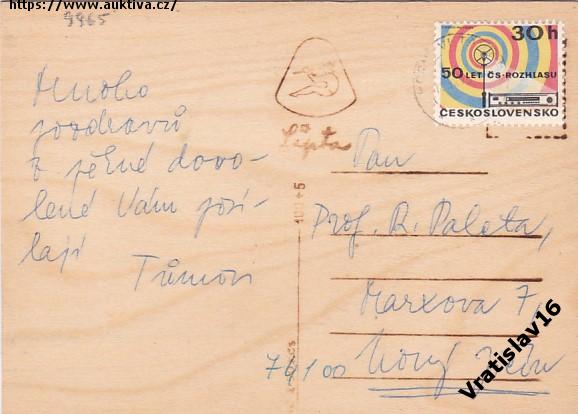 https://www.auktiva.cz/
9965
30h
50 LET ČS. ROZHLASU
ČESKOSLOVENSKO
Mnoho
pozdravů
z pěkné dovo-
lené Vám posí-
lají
Tůmovi
100+5
Pan
Prof. R. Paleta,
Marxova 7,
Nový Jičín
Vratislav16